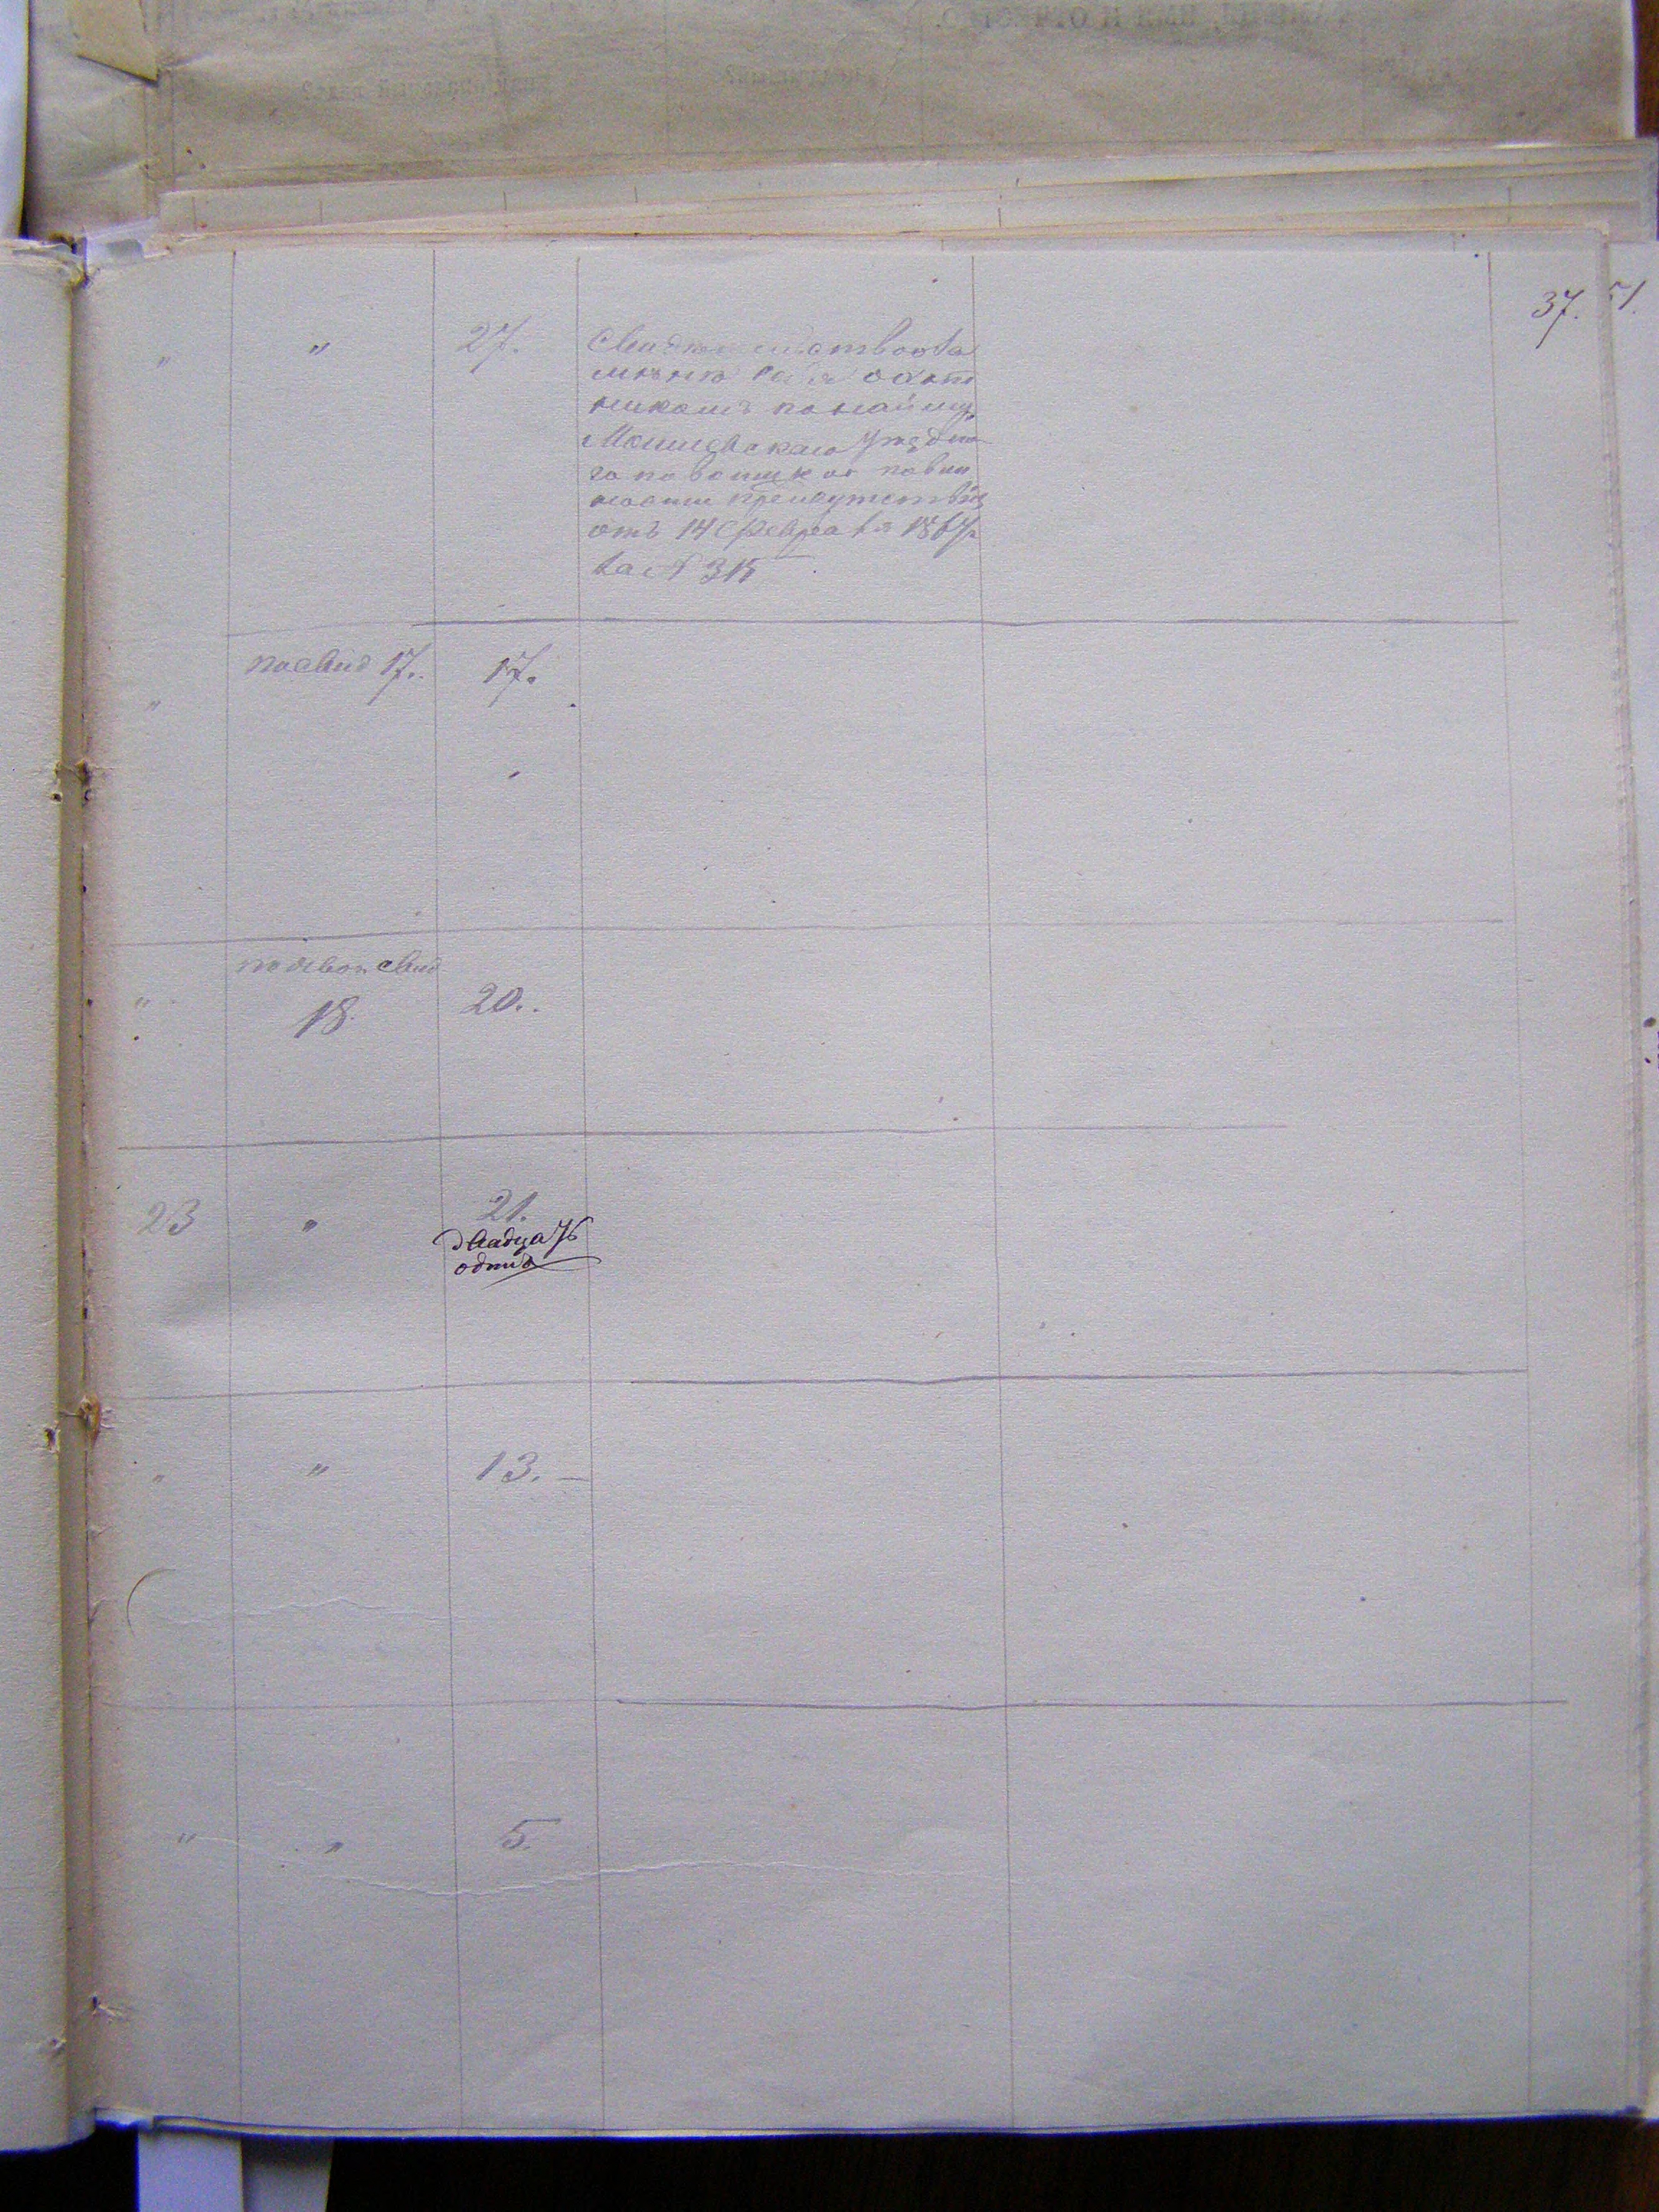 37.
51.
" " 27. Свидѣтельство за
мѣнѣ себя охот
никомъ по найму
Могилевскаго уѣздна
го по воинской повин
ности присутствія
отъ 14 Февраля
за № 315
" по свид 17. 17.
" по
18. 20.
23 " 21.
двадцать
одинъ
" " 13. —
" " 5.